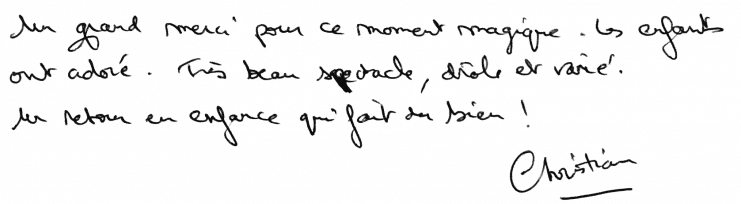 Un grand merci pour ce moment magique. Les enfants
ont adoré. Très beau spectacle, drôle et varié.
Un retour en enfance qui fait du bien !
Christian